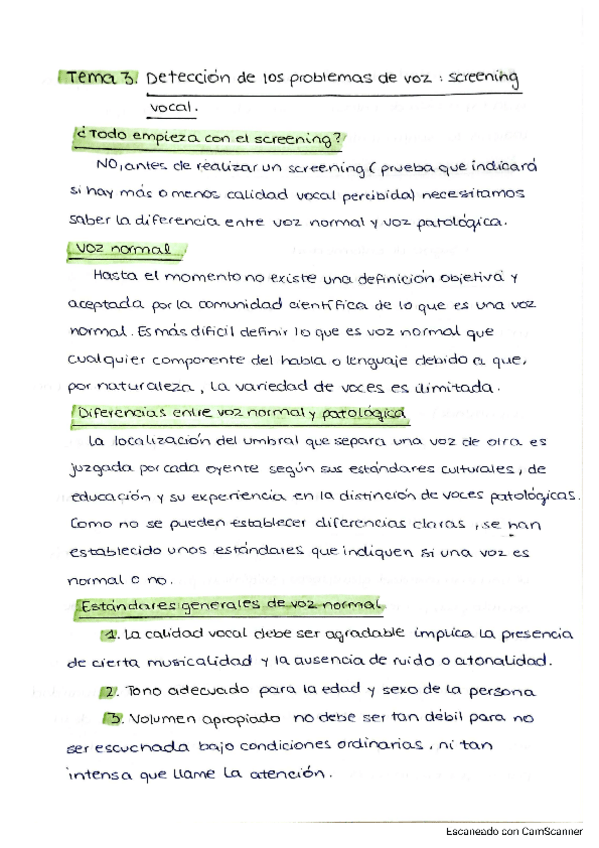 Tema 3. Detección de los problemas de voz: screening
vocal.
¿Todo empieza con el screening?
NO, antes de realizar un screening (prueba que indicará
si hay más o menos calidad vocal percibida) necesitamos
saber la diferencia entre voz normal y voz patológica.
Voz normal
Hasta el momento no existe una definición objetiva y
aceptada por la comunidad científica de lo que es una voz
normal. Es más difícil definir lo que es voz normal que
cualquier componente del habla o lenguaje debido a que,
por naturaleza, la variedad de voces es ilimitada.
Diferencias entre voz normal y patológica
La localización del umbral que separa una voz de otra es
juzgada por cada oyente según sus estándares culturales, de
educación y su experiencia en la distinción de voces patológicas.
Como no se pueden establecer diferencias claras, se han
establecido unos estándares que indiquen si una voz es
normal o no.
Estándares generales de voz normal
1. La calidad vocal debe ser agradable implica la presencia
de cierta musicalidad y la ausencia de ruido o atonalidad.
2. Tono adecuado para la edad y sexo de la persona
3. Volumen apropiado no debe ser tan débil para no
ser escuchada bajo condiciones ordinarias, ni tan
intensa que llame la atención.
Escaneado con CamScanner